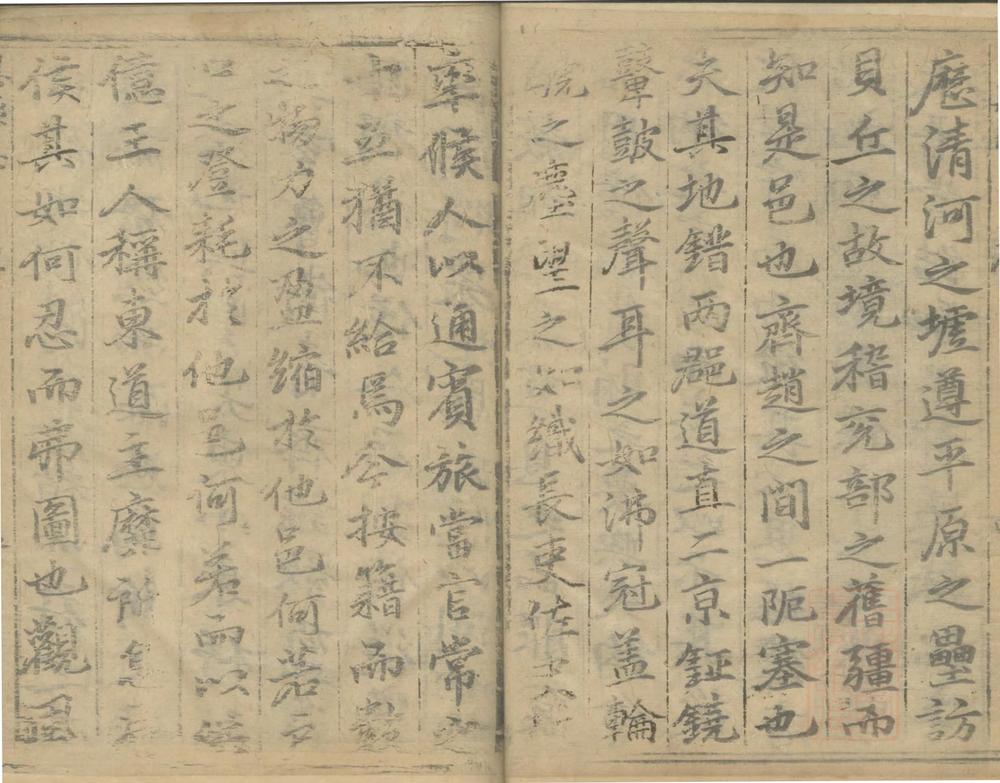 歷清河之墟遵平原之壘訪
貝丘之故境稽兖部之舊疆而
知是邑也齊趙之間一阨塞也
夫其地錯兩郡道直二京鉦鐃
鼙鼓之聲耳之如沸冠盖輪
之塵望之如織長吏佐
率候人以通賓旅當官常
並猶不給焉今按籍而數
物力之盈縮於他邑何若
之登耗於他邑何若而以
億王人稱東道主靡
侯其如何忍而弗圖也觀